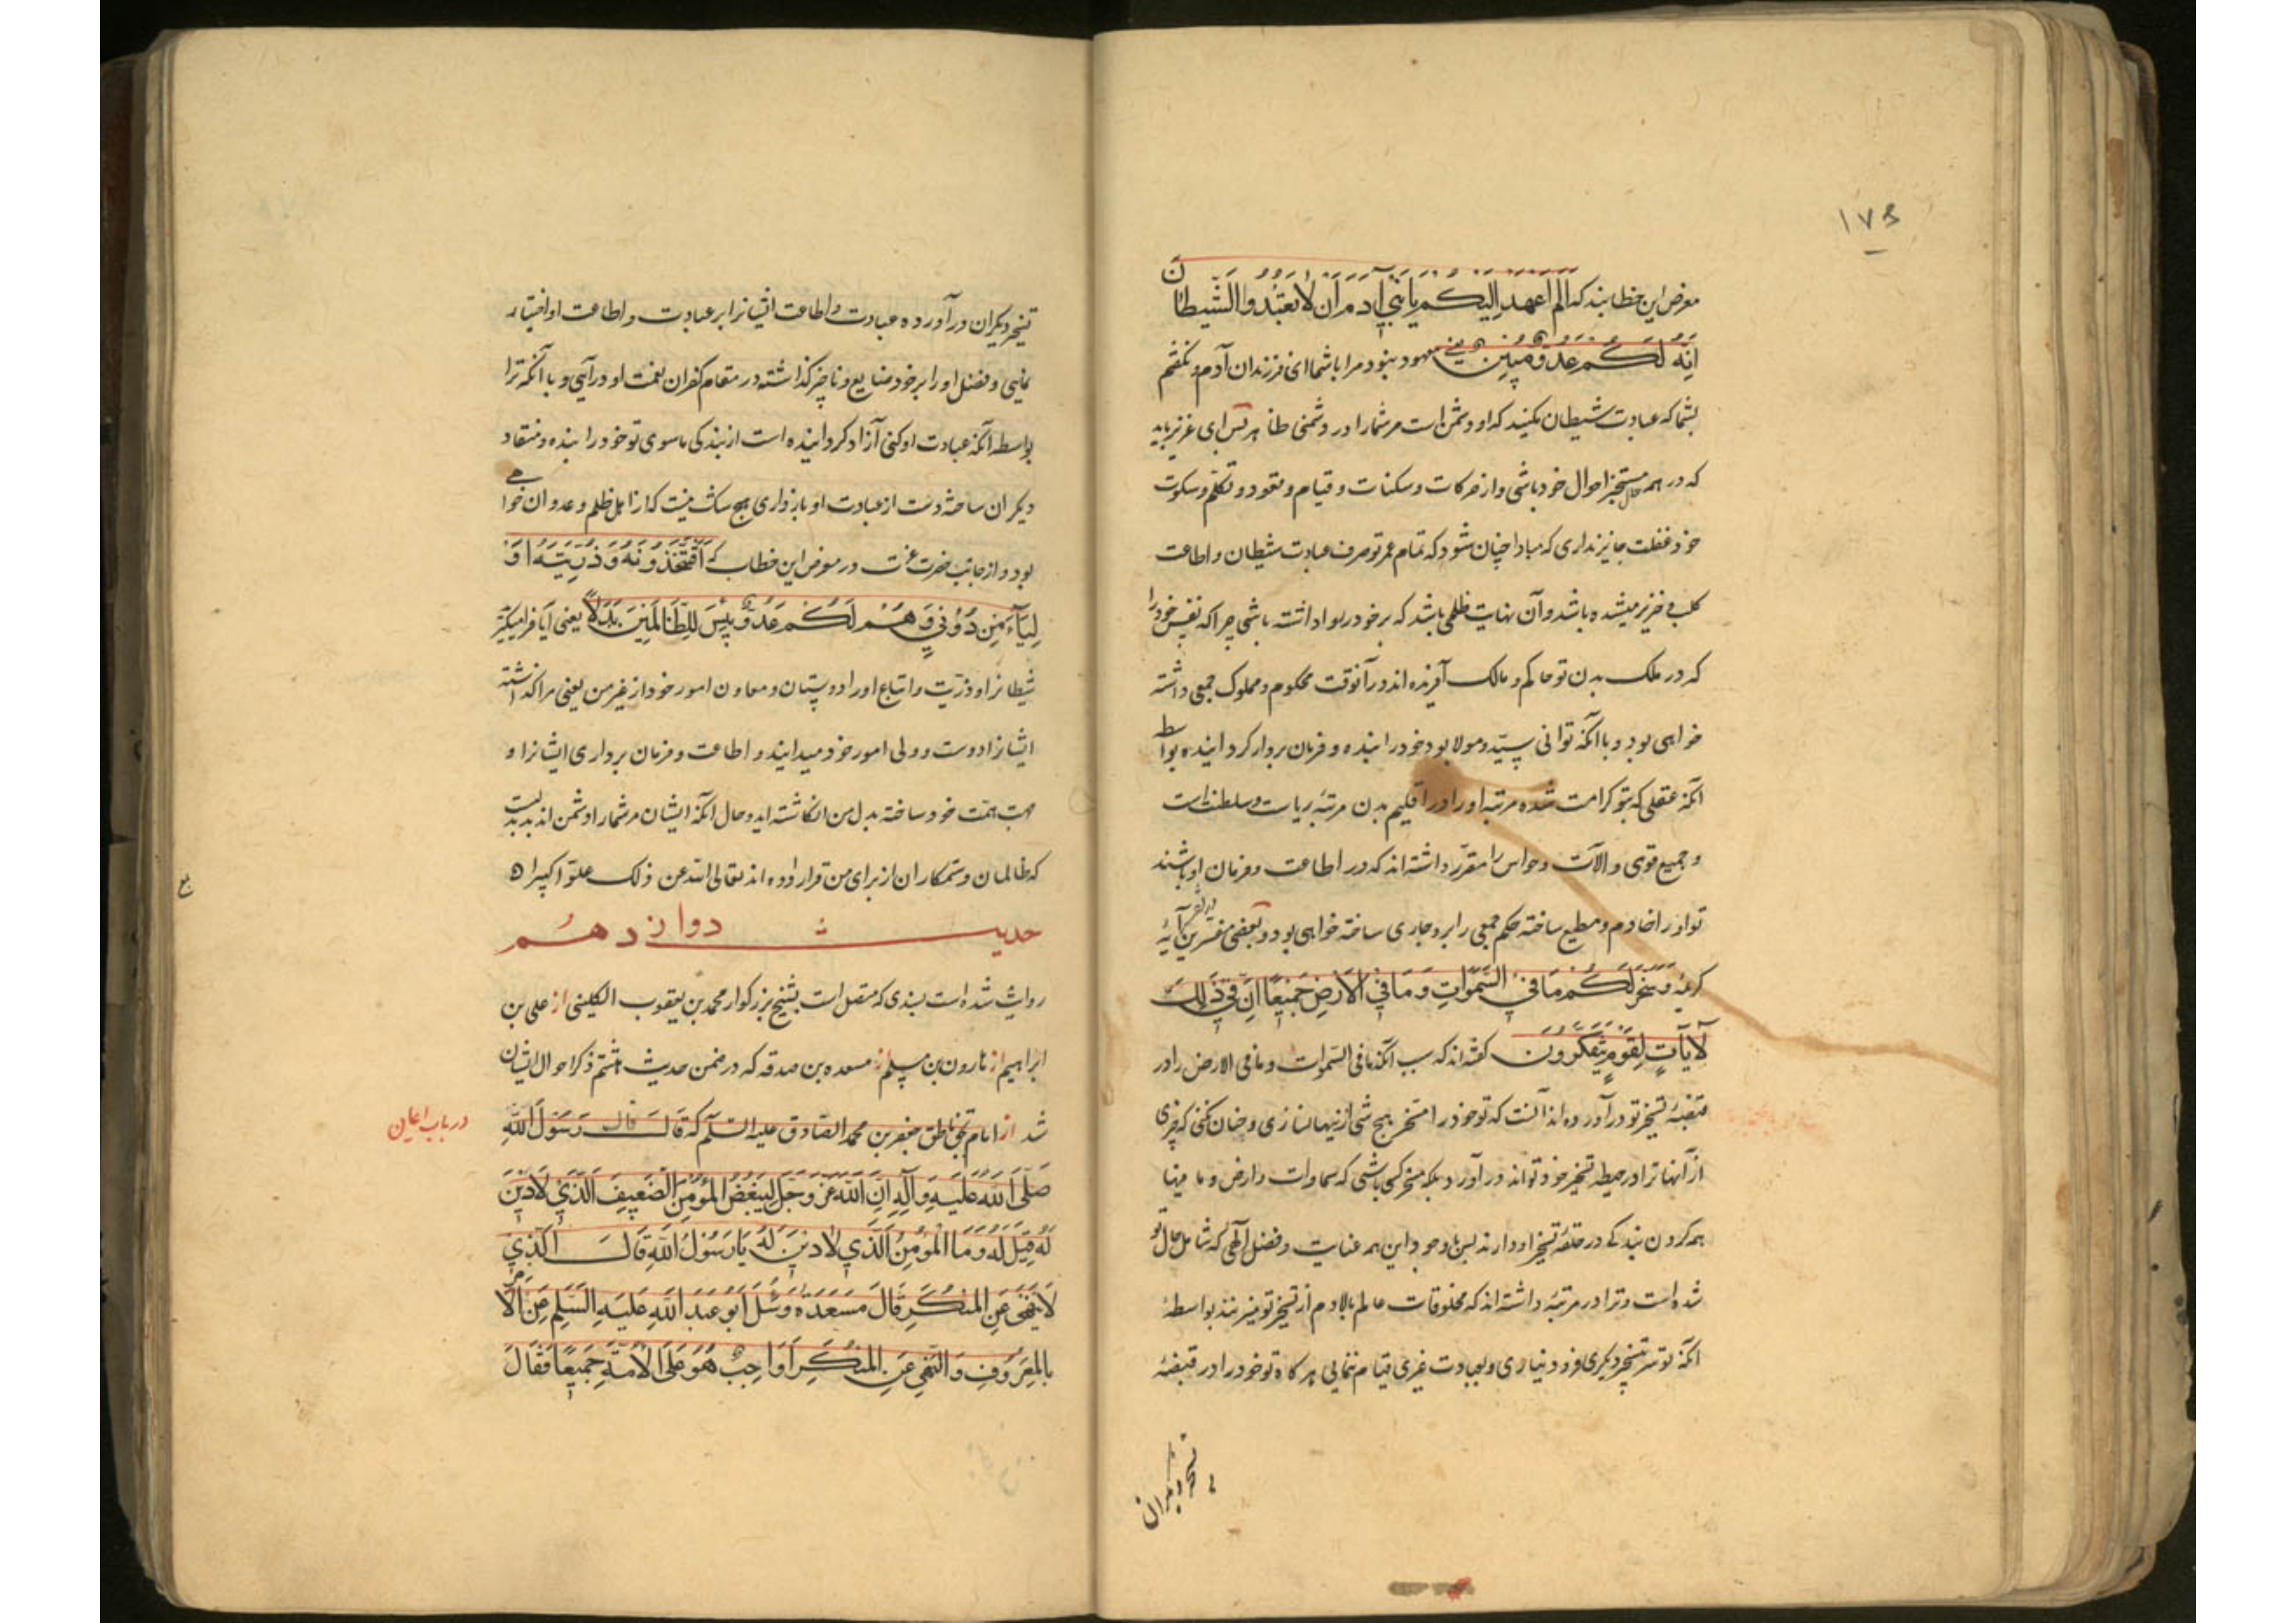 ۱۷۵
معرض این خطابند که الم اعهد الیکم یا بنی آدم ان لا تعبدوا الشیطان
انه لکم عدو مبین یعنی معهود بنود مرا باشما ای فرزندان آدم و نکفتم
بشما که عبادت شیطان نکنید که او دشمن است مر شما را در دشمنی ظاهر پس ای عزیز باید
که در همه حال مستخبر احوال خود باشی و از حرکات و سکنات و قیام و قعود و تکلم و سکوت
خود غفلت جایز نداری که مبادا چنان شود که تمام عمر تو صرف عبادت شیطان و اطاعت
کلب و خنزیر میشده باشد و آن نهایت ظلمی باشد که بر خود روا داشته باشی چرا که نفس خود را
که در ملک بدن تو حاکم و مالک آفریده اند در آنوقت محکوم و مملوک جمعی داشته
خواهی بود و با آنکه توانی سید و مولا بود خود را بنده و فرمان بردار کردانیده بواسطه
آنکه عقلی که بتو کرامت شده مرتبه او را در اقلیم بدن مرتبهٔ ریاست و سلطنت است
و جمیع قوی و الات و حواس را مقرر داشته اند که در اطاعت و فرمان او باشند
تو او را خادم و مطیع ساخته حکم جمعی را بر او جاری ساخته خواهی بود و بعضی مفسرین در تفسیر آیهٔ
کریمهٔ و سخر لکم ما فی السموات و ما فی الارض جمیعا ان فی ذلک
لایات لقوم یتفکرون کفته اند که سبب آنکه ما فی السموات و ما فی الارض را در
قبضهٔ تسخیر تو در آورده اند آنست که تو خود را مسخر هیچ شی از ینها نسازی و چنان نکنی که چیزی
از آنها ترا در حیطه تسخیر خود تواند در آورد بلکه مسخر کسی باشی که سماوات و ارض و ما فیها
همه کردن بندکی در حلقهٔ تسخیر او دارند پس با وجود این همه عنایت و فضل الهی که شامل حال تو
شده است و ترا در مرتبهٔ داشته اند که مخلوقات عالم بالا دم از تسخیر تو میزنند بواسطهٔ
آنکه تو سر بتسخیر دیکری فرود نیاری و بعبادت غیری قیام ننمایی هر کاه تو خود را در قبضهٔ
تسخیر دیکران
تسخیر دیکران در آورده عبادت و اطاعت ایشانرا بر عبادت و اطاعت او اختیار
نمایی و فضل او را بر خود ضایع و ناچیز کذاشته در مقام کفران نعمت او در آیی و با آنکه ترا
بواسطه آنکه عبادت او کنی آزاد کردانیده است از بندکی ماسوی تو خود را بنده و منقاد
دیکران ساخته دست از عبادت او باز داری هیچ شک نیست که از اهل ظلم و عدوان خواهی
بود و از جانب حضرت عزت در معرض این خطاب که افتتخذونه و ذریته او
لیاء من دونی و هم لکم عدو بئس للظالمین بدلا یعنی آیا فرا میکیرید
شیطانرا و ذریت و اتباع او را دوستان و معاون امور خود از غیر من یعنی مرا کذاشته
ایشانرا دوست و ولی امور خود میدانید و اطاعت و فرمان برداری ایشانرا و
جهت همت خود ساخته بدل من انکاشته اید و حال آنکه ایشان مر شما را دشمن اند بد بدلیست
که ظالمان و ستمکاران از برای من قرار داده اند تعالی الله عن ذلک علوا کبیرا
حدیث دوازدهم
روایت شده است بسندی که متصل است بشیخ بزرکوار محمد بن یعقوب الکلینی از علی بن
ابراهیم از هارون بن مسلم از مسعده بن صدقه که در ضمن حدیث هشتم ذکر احوال ایشان
شد از امام بحق ناطق جعفر بن محمد الصادق علیه السلام که قال قال رسول الله
صلی الله علیه و آله ان الله عز و جل لیبغض المؤمن الضعیف الذی لا دین
له قیل له و ما المؤمن الذی لا دین له یا رسول الله قال الذی
لا ینهی عن المنکر قال مسعدة و سئل ابو عبد الله علیه السلم عن الامر
بالمعروف و النهی عن المنکر أواجب هو علی الامة جمیعا فقال
در باب اعیان